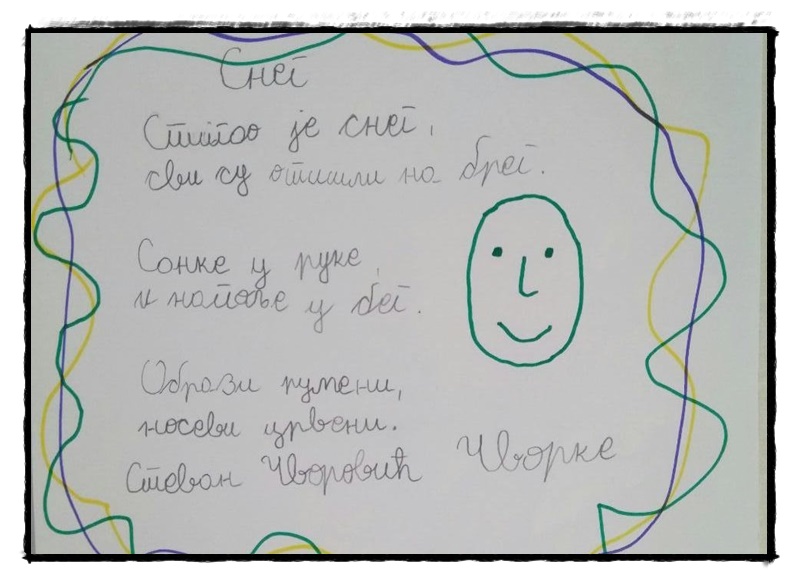 Снег
Стигао је снег,
сви су отишли на брег.
Сонке у руке,
и напоље у бег.
Образи румени,
носеви црвени.
Стеван Чворовић Чворке